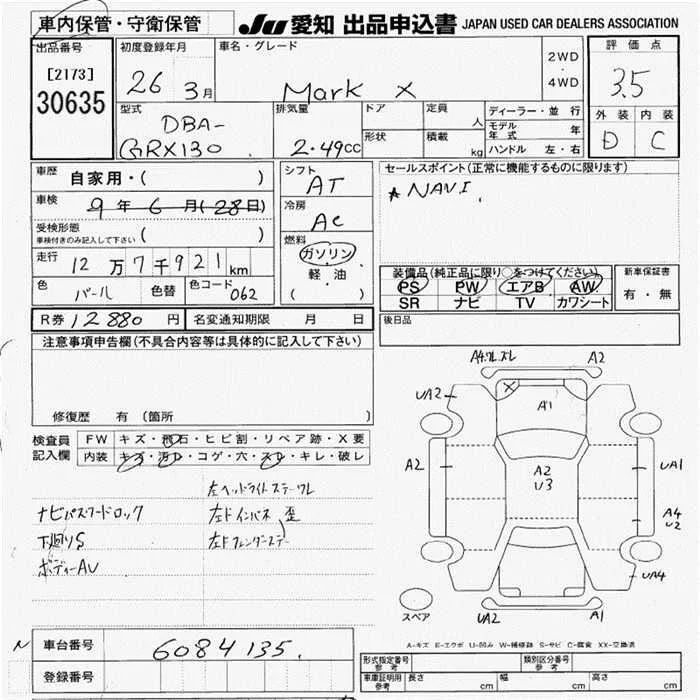 車内保管・守衛保管
JU 愛知 出品申込書 JAPAN USED CAR DEALERS ASSOCIATION
出品番号
[2173]
30635
初度登録年月
26 3月
車名・グレード
Mark X
2WD
・
4WD
評価点
3.5
外装 内装
D C
型式
DBA-
GRX130
排気量
2.49cc
ドア
定員
人
形状
積載
kg
ディーラー・並行
モデル年式 年
ハンドル 左・右
車歴
自家用・( )
車検
9年6月(28日)
受検形態
車検付きのみ記入して下さい ( )
走行
12万7千921km
色
パール
色替
色コード
062
シフト
AT
冷房
AC
燃料
ガソリン
・
軽油
( )
セールスポイント(正常に機能するものに限ります)
★NAVI
装備品(純正品に限り○をつけてください)
PS PW エアB AW
SR ナビ TV カワシート
新車保証書
有・無
R券 12880円
名変通知期限 月 日
後日品
注意事項申告欄(不具合内容等は具体的に記入して下さい)
修復歴 有(箇所 )
検査員
記入欄
FW キズ・飛石・ヒビ割・リペア跡・X要
内装 キズ・汚レ・コゲ・穴・スレ・キレ・破レ
左ヘッドライトステーワレ
ナビパスワードロック
左Fインパネ歪
下廻りS
左Fフェンダーステー
ボディーAU
A4.ワレ.ズレ
A2
UA2
X
A1
A2
A2
U3
UA1
A4
U2
UA4
スペア
UA2
A1
A-キズ E-エクボ U-凹み W-補修跡 S-サビ C-腐食 XX-交換済
N
車台番号
6084135
登録番号
形式指定番号
参考
類別区分番号
参考
車庫証明用
参考
長さ cm 幅 cm 高さ cm